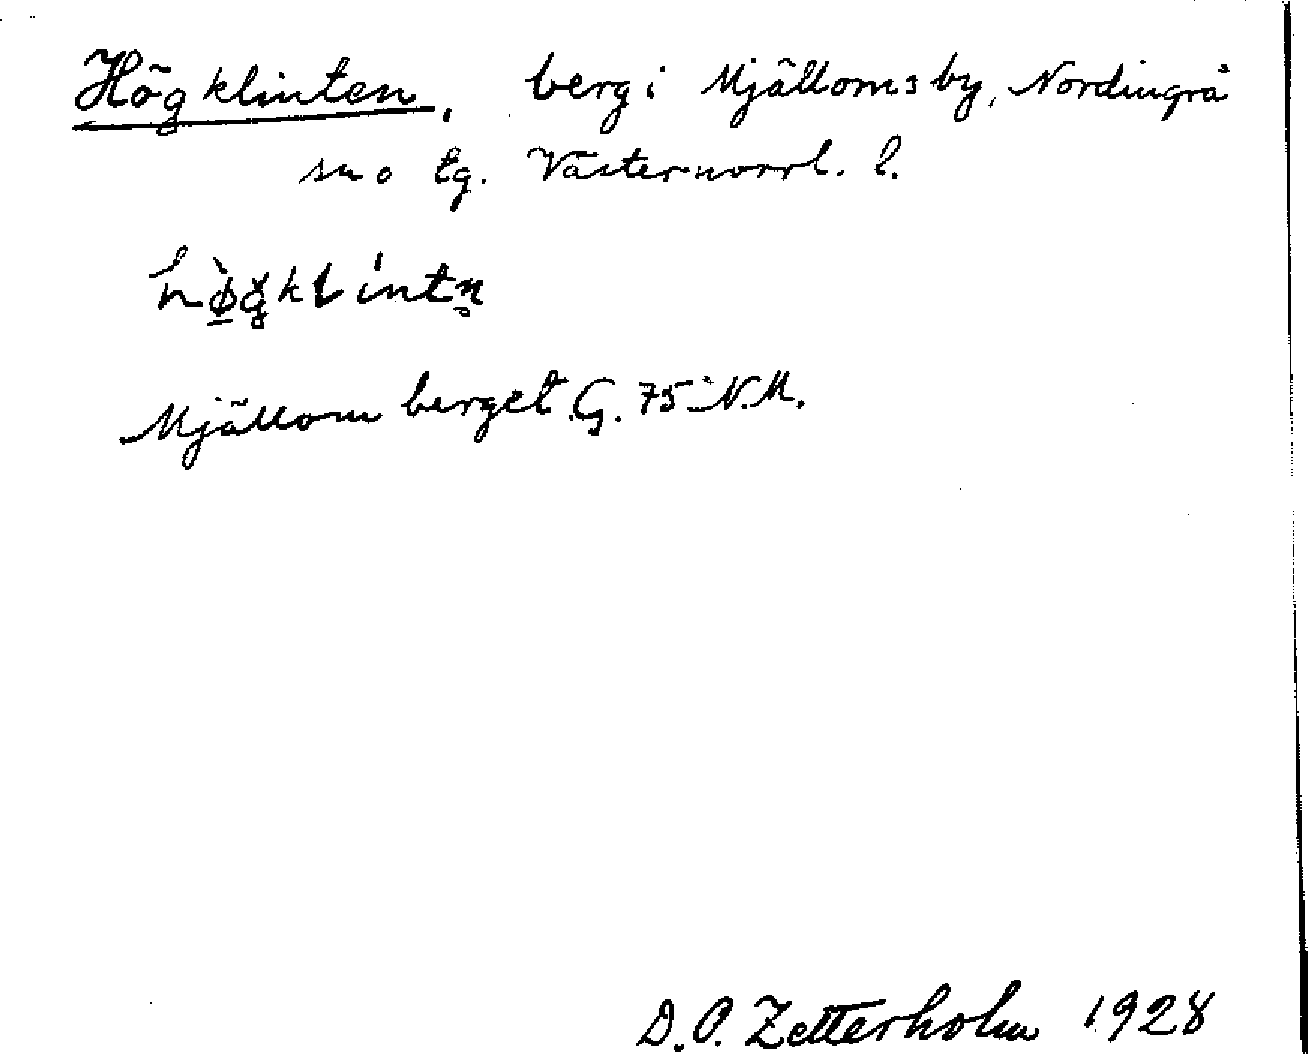 Högklinten, berg i Mjälloms by, Nordingrå
sn o tg. Västernorrl. l.
hø̀gklíntn̥
Mjällomberget G. 75 N.M.
D.O. Zetterholm 1928